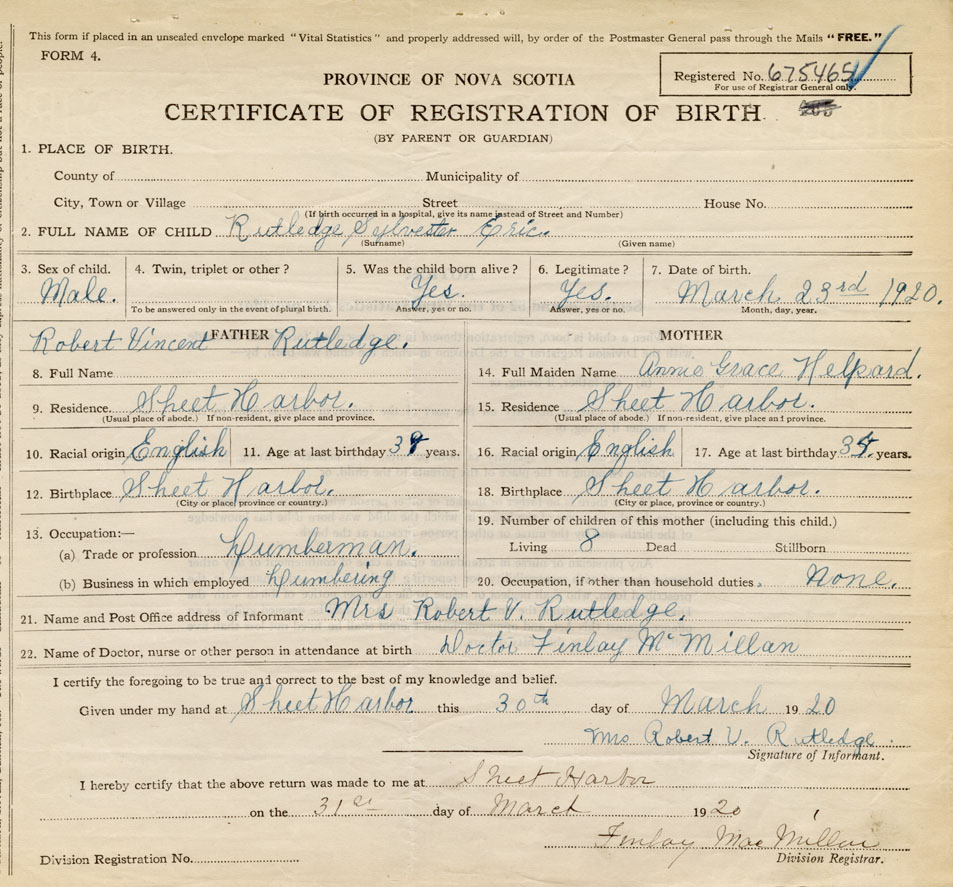 This form if placed in an unsealed envelope marked "Vital Statistics" and properly addressed will, by order of the Postmaster General pass through the Mails "FREE."
FORM 4.
Registered No. 675465
For use of Registrar General only.
PROVINCE OF NOVA SCOTIA
CERTIFICATE OF REGISTRATION OF BIRTH
(BY PARENT OR GUARDIAN)
1. PLACE OF BIRTH.
County of Municipality of
City, Town or Village Street House No.
(If birth occurred in a hospital, give its name instead of Street and Number)
2. FULL NAME OF CHILD Rutledge Sylvester Eric.
(Surname) (Given name)
3. Sex of child. 4. Twin, triplet or other? 5. Was the child born alive? 6. Legitimate? 7. Date of birth.
Male. Yes. Yes. March 23rd 1920.
To be answered only in the event of plural birth. Answer, yes or no. Answer, yes or no. Month, day, year.
FATHER MOTHER
Robert Vincent Rutledge.
8. Full Name 14. Full Maiden Name Annie Grace Helpard.
9. Residence Sheet Harbor. 15. Residence Sheet Harbor.
(Usual place of abode.) If non-resident, give place and province. (Usual place of abode.) If non-resident, give place and province.
10. Racial origin English 11. Age at last birthday years. 16. Racial origin English 17. Age at last birthday years.
12. Birthplace Sheet Harbor. 18. Birthplace Sheet Harbor.
(City or place, province or country.) (City or place, province or country.)
13. Occupation:— 19. Number of children of this mother (including this child.)
(a) Trade or profession Lumberman. Living 8 Dead Stillborn
(b) Business in which employed Lumbering 20. Occupation, if other than household duties. None.
21. Name and Post Office address of Informant Mrs Robert V. Rutledge.
22. Name of Doctor, nurse or other person in attendance at birth Doctor Finlay McMillan
I certify the foregoing to be true and correct to the best of my knowledge and belief.
Given under my hand at Sheet Harbor this 30th day of March 1920
Mrs Robert V. Rutledge
Signature of Informant.
I hereby certify that the above return was made to me at Sheet Harbor
on the 31st day of March 1920
Finlay MacMillan
Division Registration No. Division Registrar.